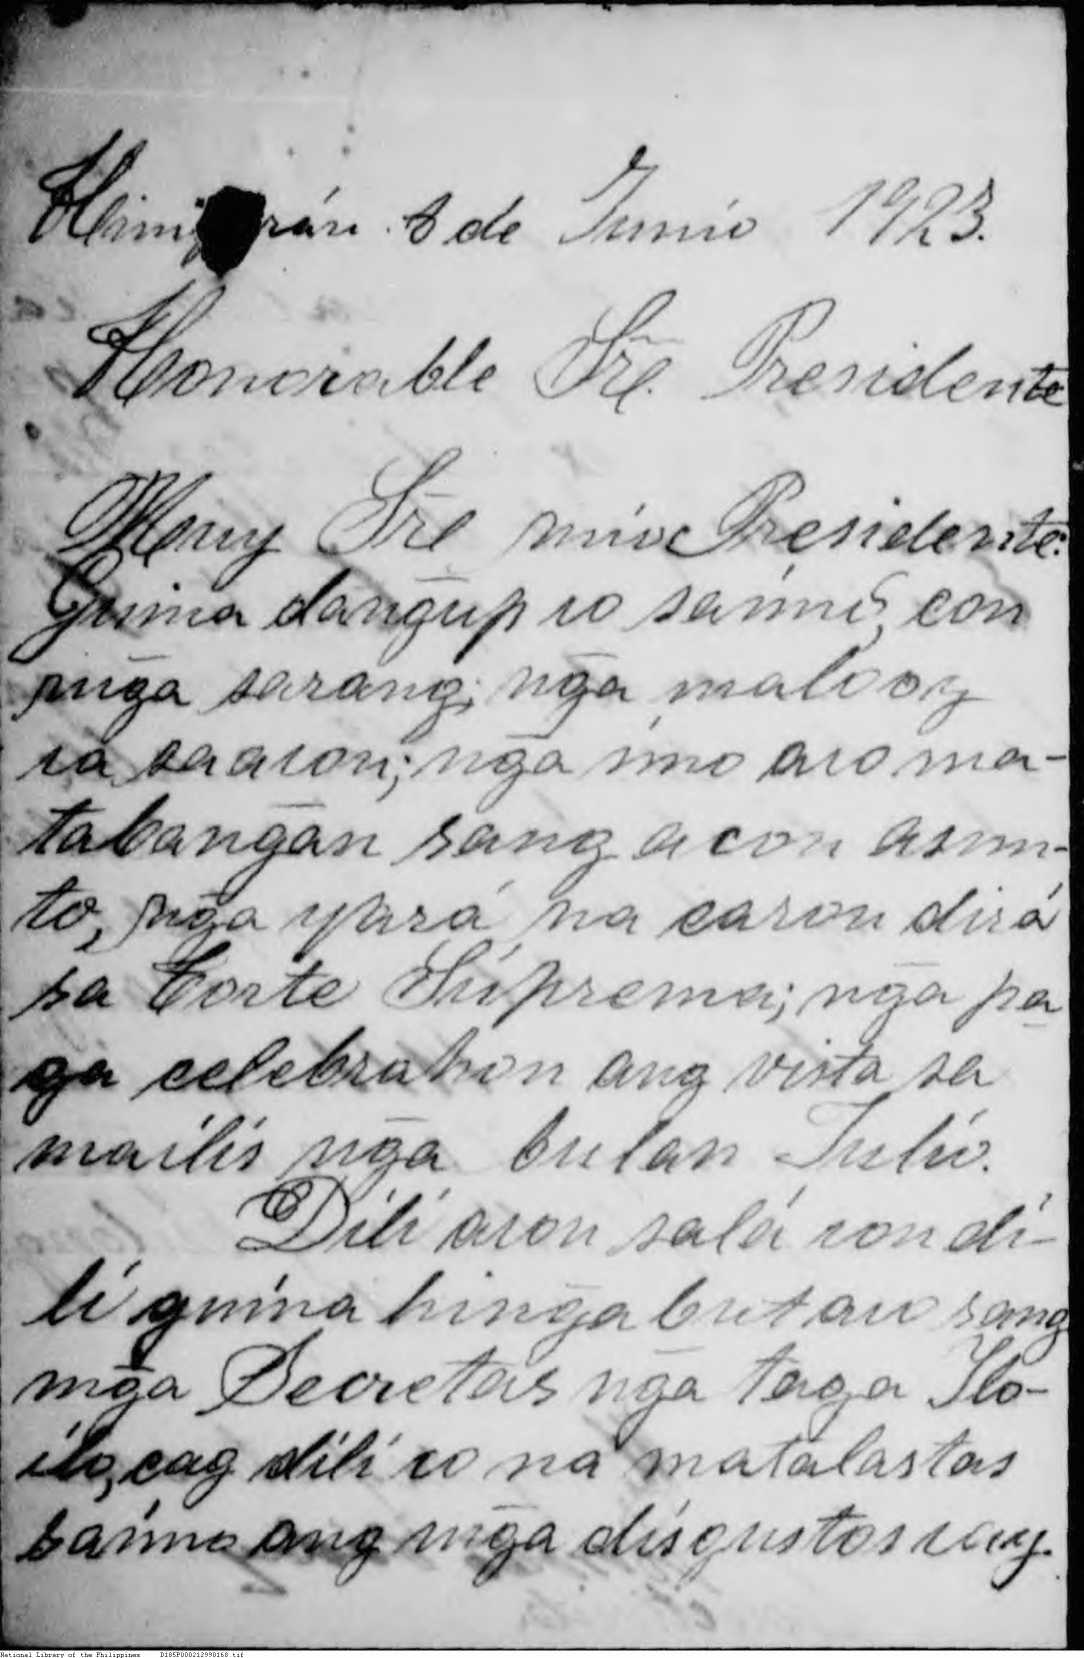 Himi rán. 8 de Junio 1923.
Honorable Sr̃e. Presidente
Muy Sr̃e mio Presidente:
Guina dang̃up co saimo, con
nug̃a sarang; ng̃a malooy
ca saacon; ng̃a imo aco ma-
tabang̃an sang acon asun-
to, ng̃a yará na caron dirá
sa Corte Súprema; ng̃a pa
ga celebrahon ang vista sa
mailis ng̃a bulan Julio.
Dili acon salá con di-
li guina hing̃abut aco sang
mg̃a Secretas ng̃a taga Ilo-
ilo, cag dili co na matalastas
saimo ang mg̃a disgustos cay.
National Library of the Philippines D185P000212990168.tif